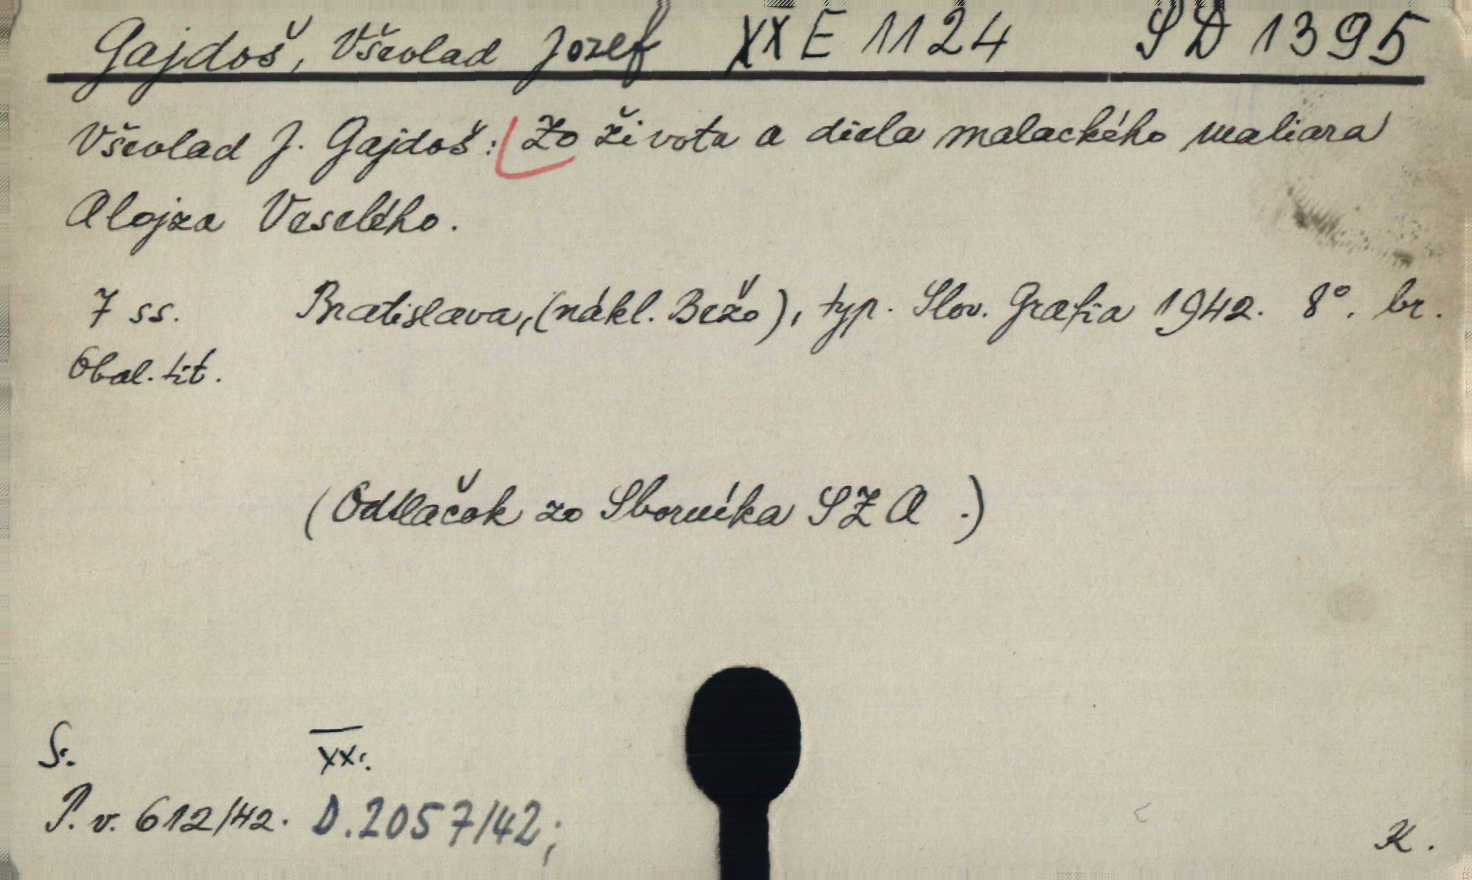 Gajdoš, Všeolad Jozef XX E 1124 SD 1395
Všeolad J. Gajdoš: Zo života a diela malackého maliara
Alojza Veselého.
7 ss. Bratislava, (nákl. Bežo), typ. Slov. Grafia 1942. 8°. br.
Obal. tit.
(Odtlačok zo Sborníka SZA.)
S. XX.
P. v. 612/42. D. 2057/42;
K.